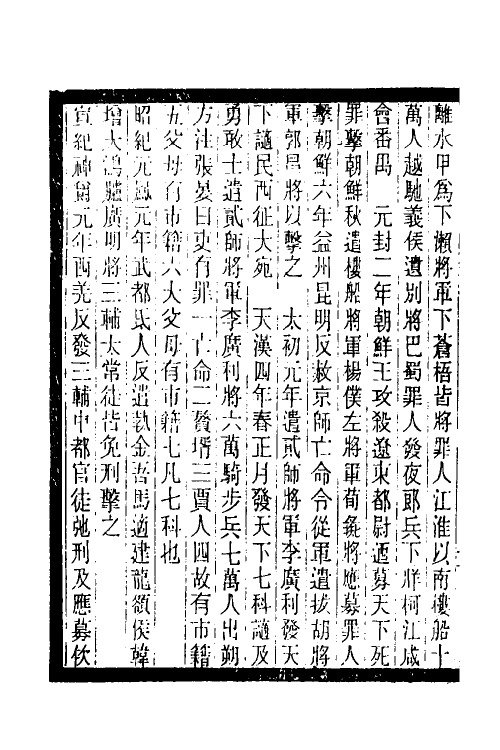 離水甲為下瀨將軍下蒼梧皆將罪人江淮以南樓船十
萬人越馳義侯遺別將巴蜀罪人發夜郎兵下牂柯江咸
會番禺　元封二年朝鮮王攻殺遼東都尉迺募天下死
罪擊朝鮮秋遣樓船將軍楊僕左將軍荀彘將應募罪人
擊朝鮮六年益州昆明反赦京師亡命令從軍遣拔胡將
軍郭昌將以擊之　太初元年遣貳師將軍李廣利發天
下謫民西征大宛　天漢四年春正月發天下七科謫及
勇敢士遣貳師將軍李廣利將六萬騎步兵七萬人出朔
方注張晏曰吏有罪一亡命二贅壻三賈人四故有市籍
五父母有市籍六大父母有市籍七凡七科也
昭紀元鳳元年武都氐人反遣執金吾馬適建龍頟侯韓
增大鴻臚廣明將三輔太常徒皆免刑擊之
宣紀神爵元年西羌反發三輔中都官徒弛刑及應募佽